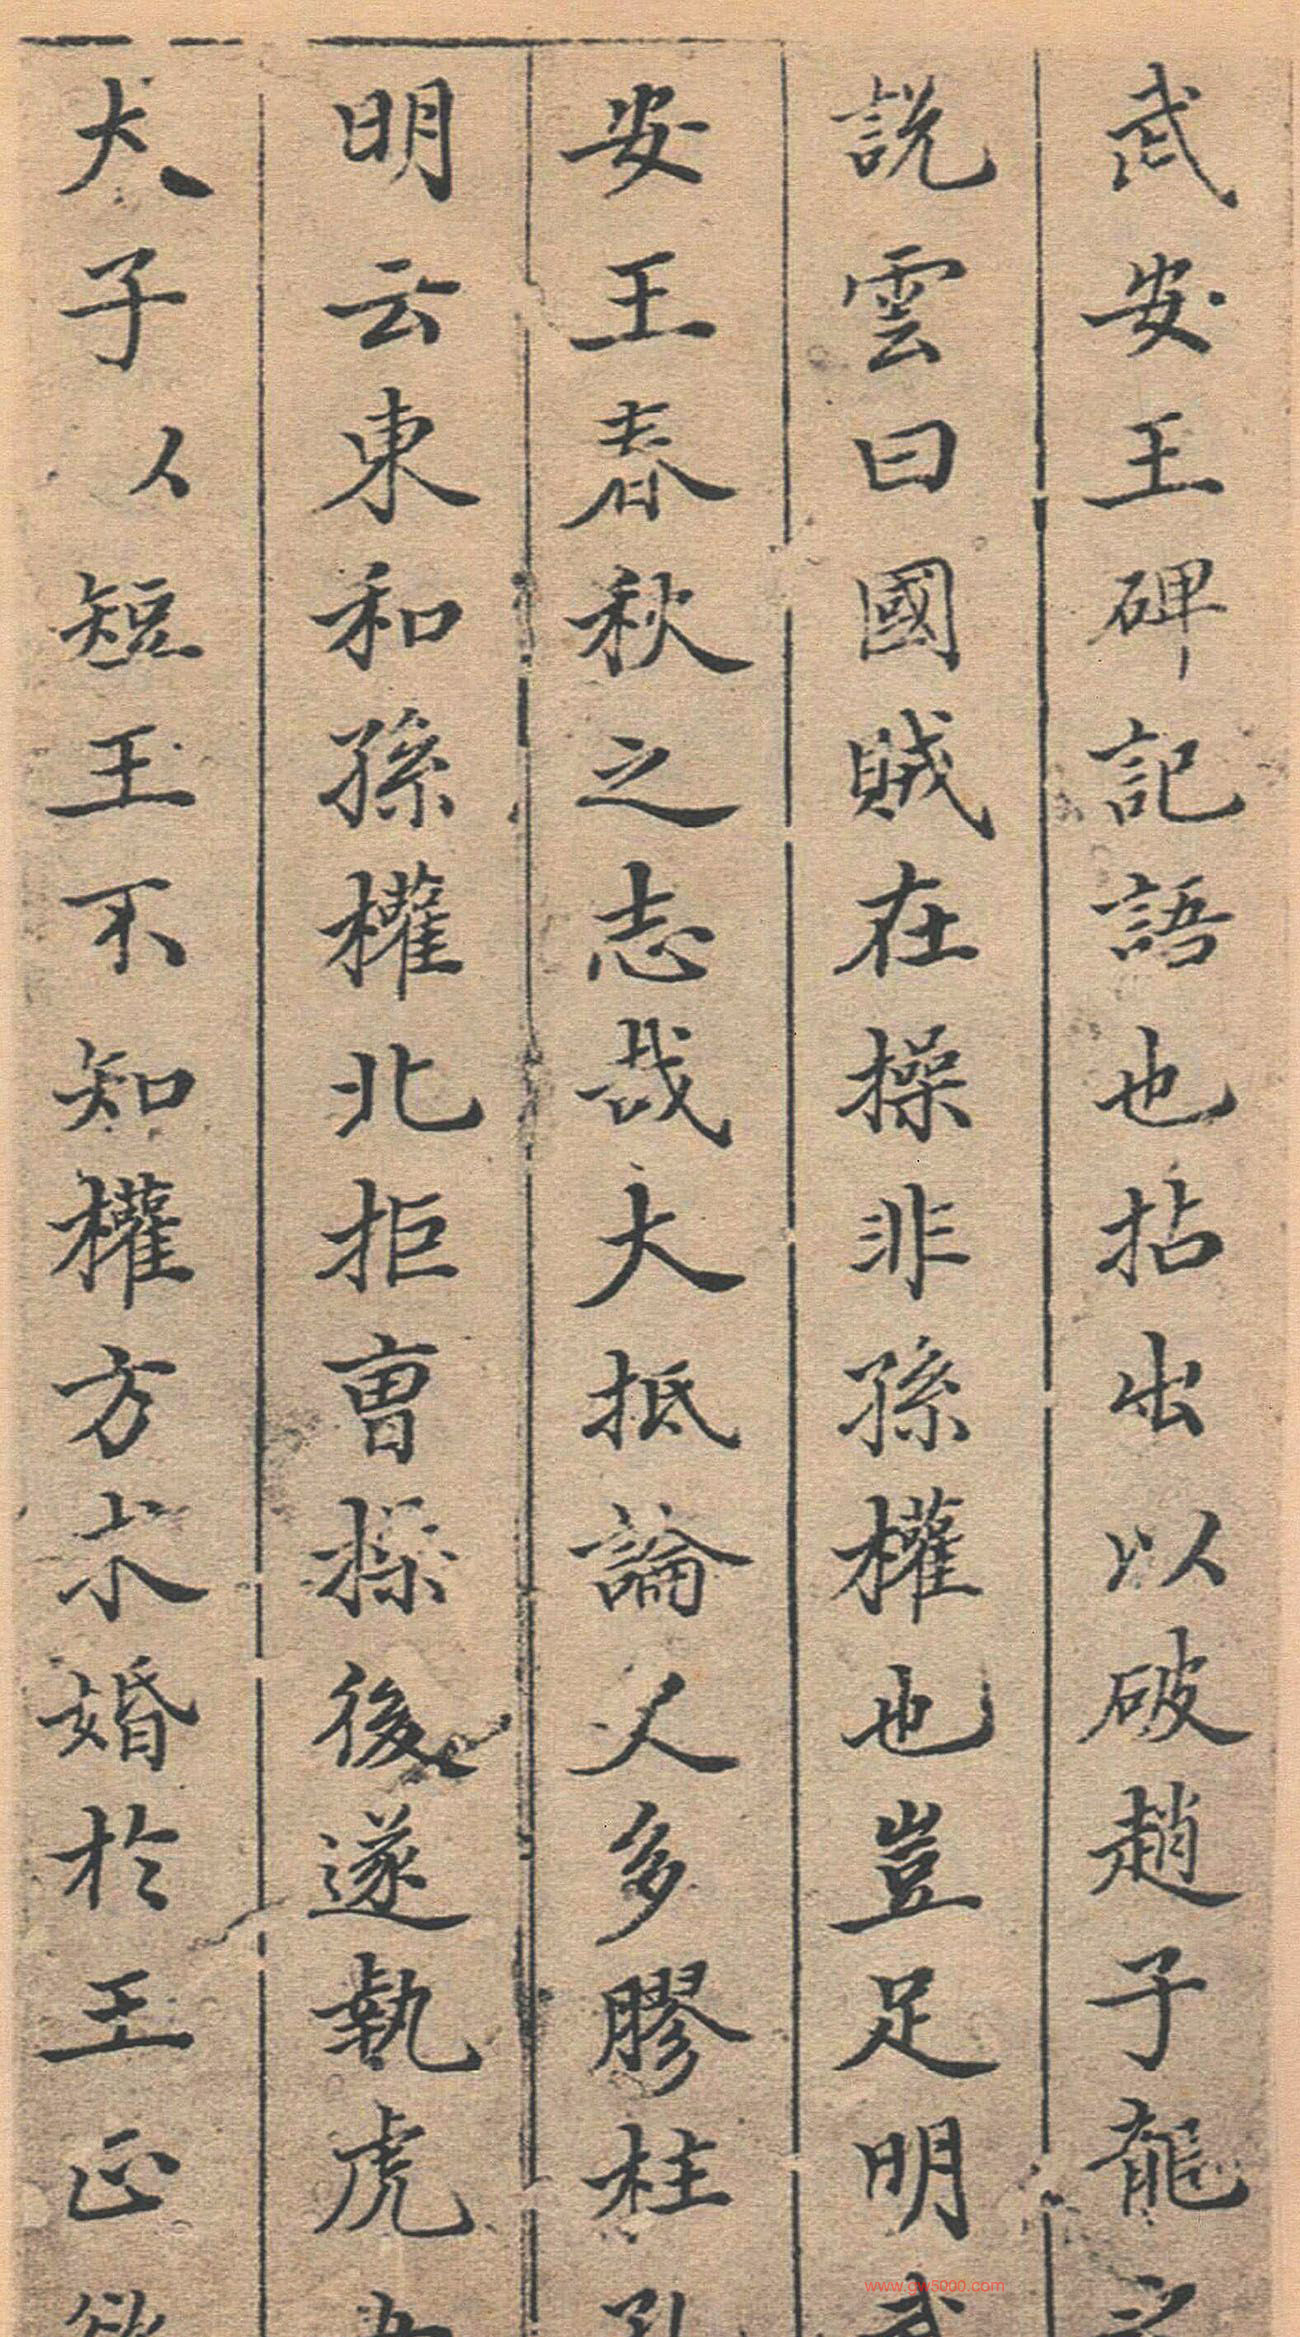 武安王碑記語也拈出以破趙子龍之
說雲曰國賊在操非孫權也豈足明武
安王春秋之志哉大抵論人多膠柱孔
明云東和孫權北拒曹操後遂執虎
犬子以短王不知權方求婚於王正欲
www.gw5000.com